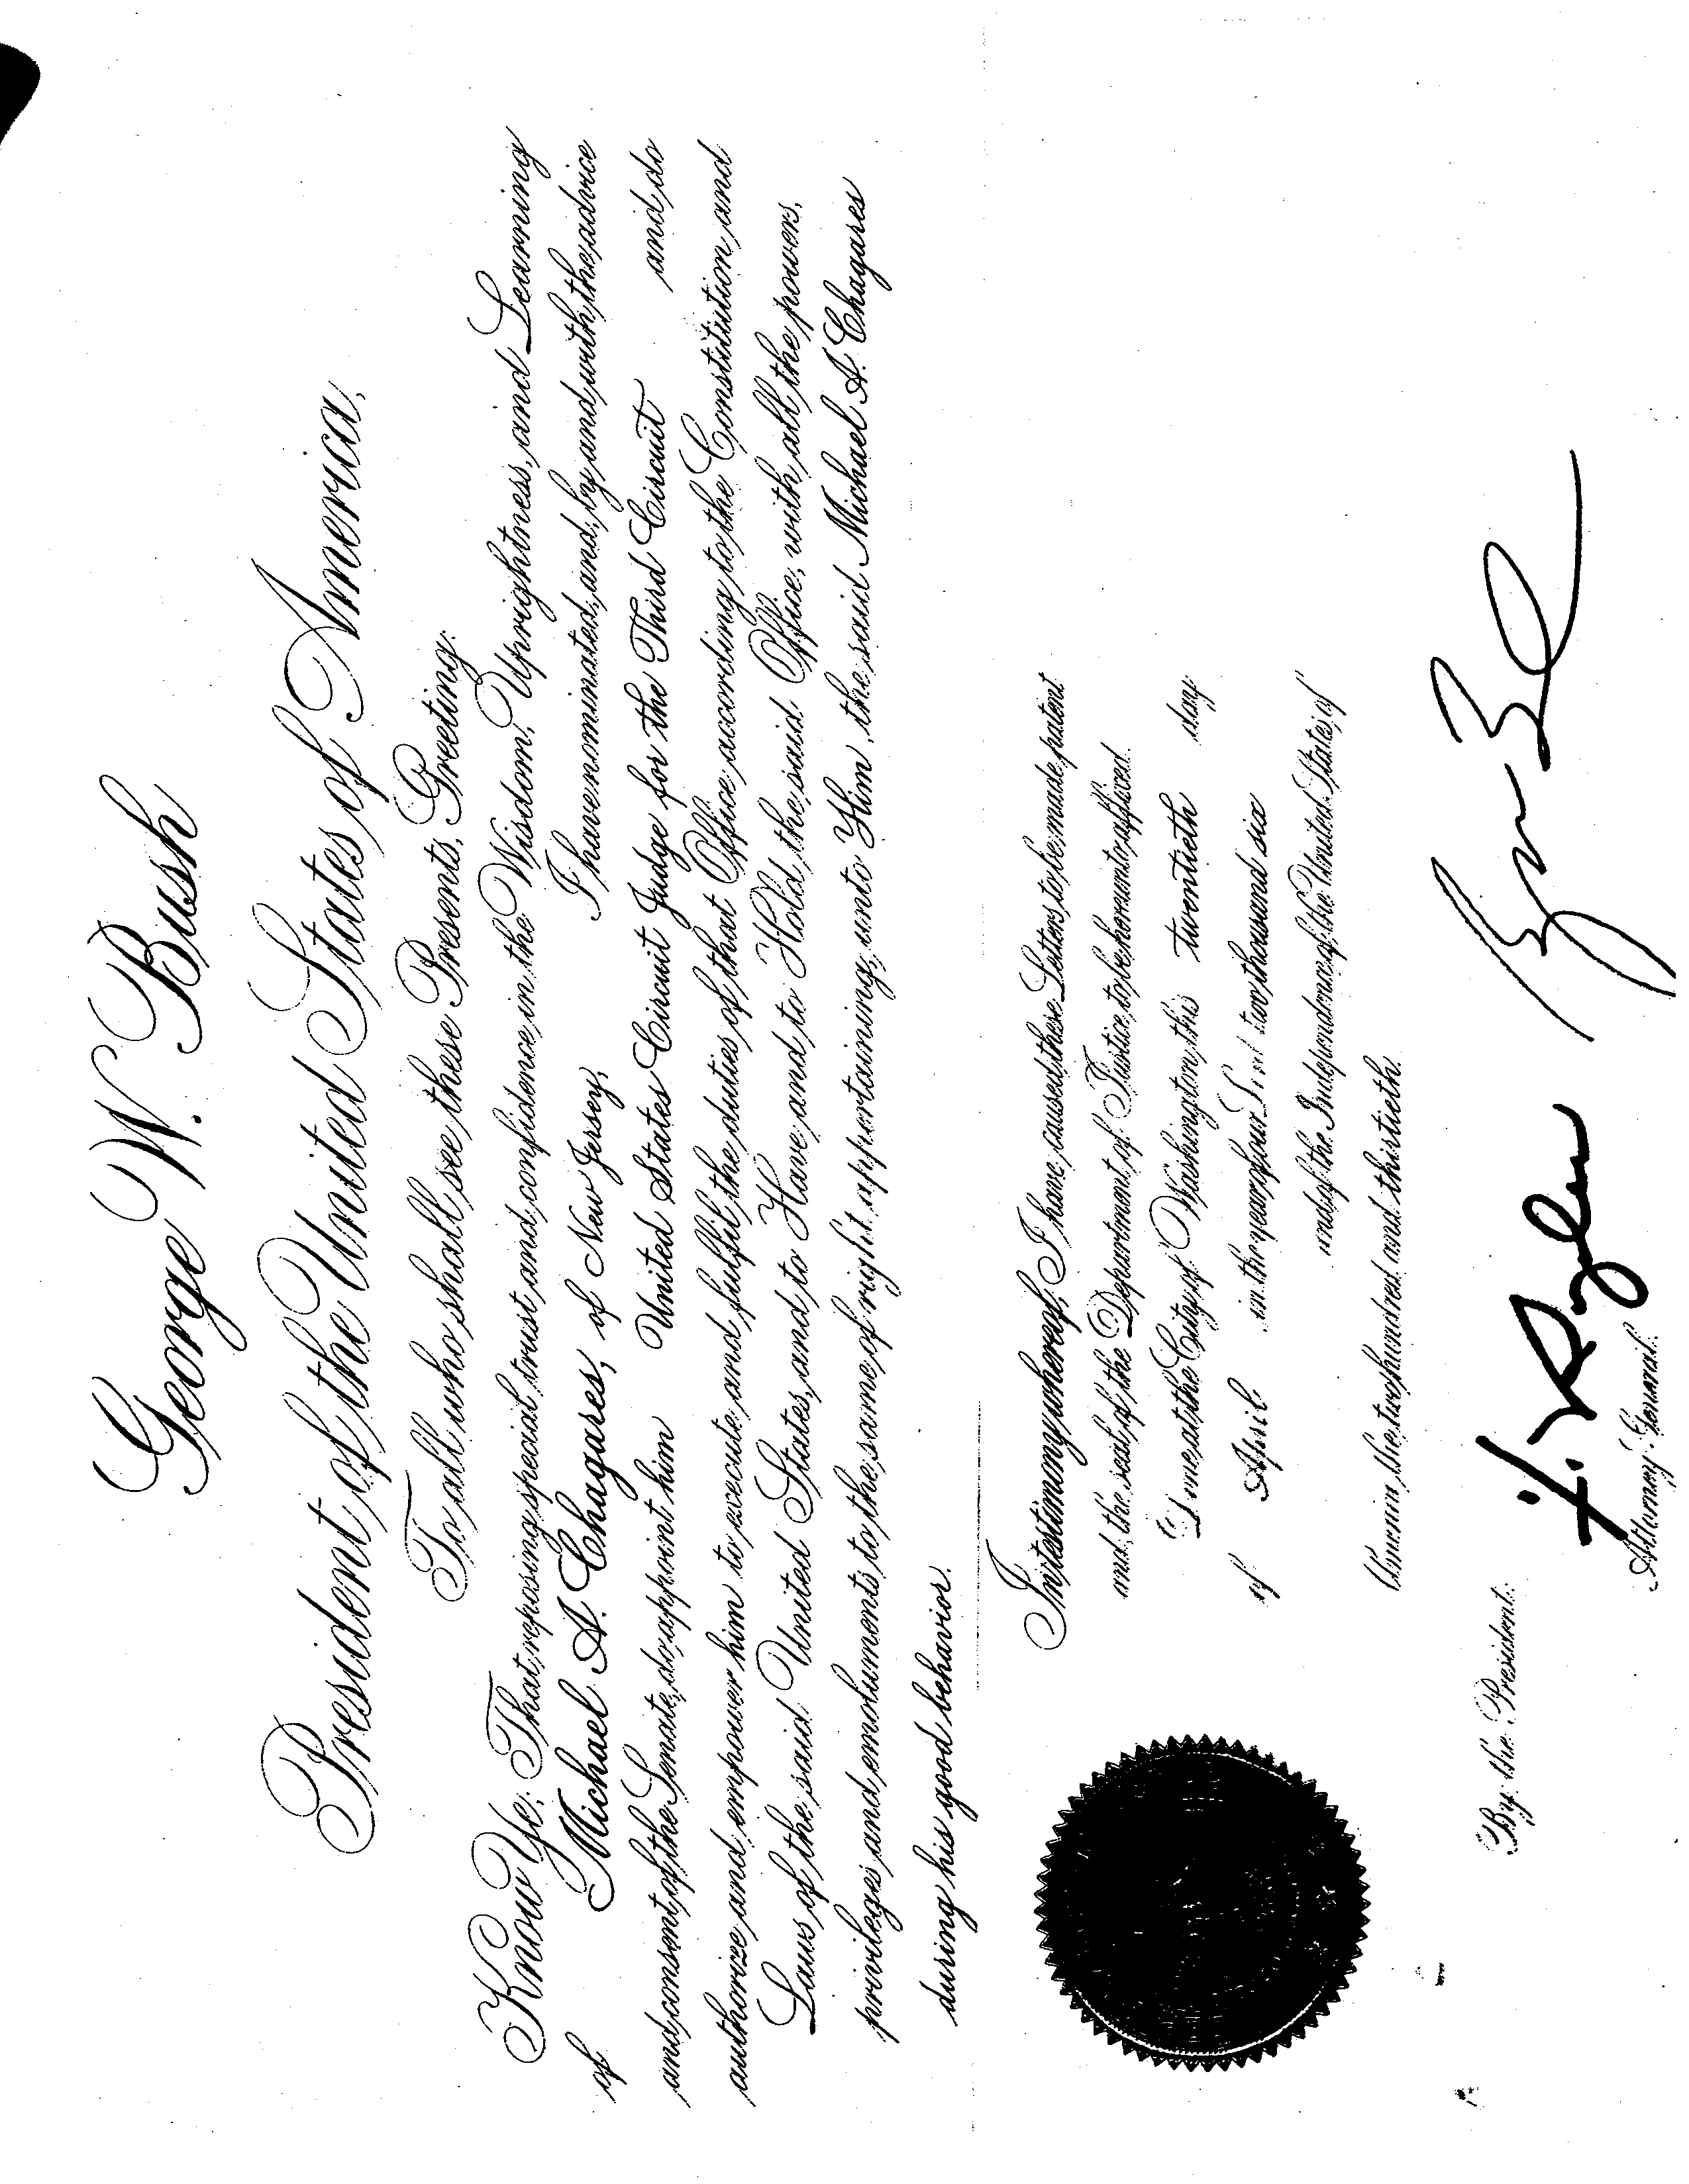 George W. Bush
President of the United States of America,
To all who shall see these Presents, Greeting:
Know Ye; That reposing special trust and confidence in the Wisdom, Uprightness, and Learning
of Michael A. Chagares, of New Jersey, I have nominated, and, by and with the advice
and consent of the Senate, do appoint him United States Circuit Judge for the Third Circuit and do
authorize and empower him to execute and fulfil the duties of that Office according to the Constitution and
Laws of the said United States, and to Have and to Hold the said Office, with all the powers,
privileges and emoluments to the same of right appertaining, unto Him, the said Michael A. Chagares
during his good behavior.
In testimony whereof, I have caused these Letters to be made patent
and the seal of the Department of Justice to be hereunto affixed.
Done at the City of Washington this twentieth day
of April in the year of our Lord two thousand six
and of the Independence of the United States of
America the two hundred and thirtieth.
By the President:
Attorney General.